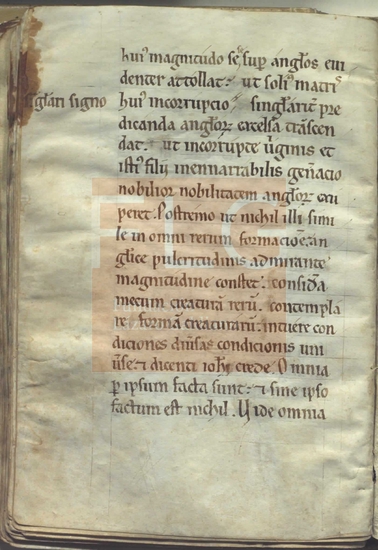 hui' magnitudo se, sup anglos eui
denter attollat. ut soli' matris
singlari signo
hui' incorruptio singlarit pre
dicanda anglor excelsa transcen
dat. ut incorrupte uginis et
isti' filij inennarrabilis gen̄acio
nobilior nobilitatem anglor exu
peret. Postremo ut nichil illi simi
le in omni rerum formacione, an
glice pulcritudinis admirante
magnitudine constet. consida
mecum creaturā rerū. contempla
re formā creaturarū. intuere con
diciones diūsas condicionis uni
ūse. & dicenti ioħi crede. Omnia
p ipsum facta sunt. & sine ipso
factum est nichil. Uide omnia